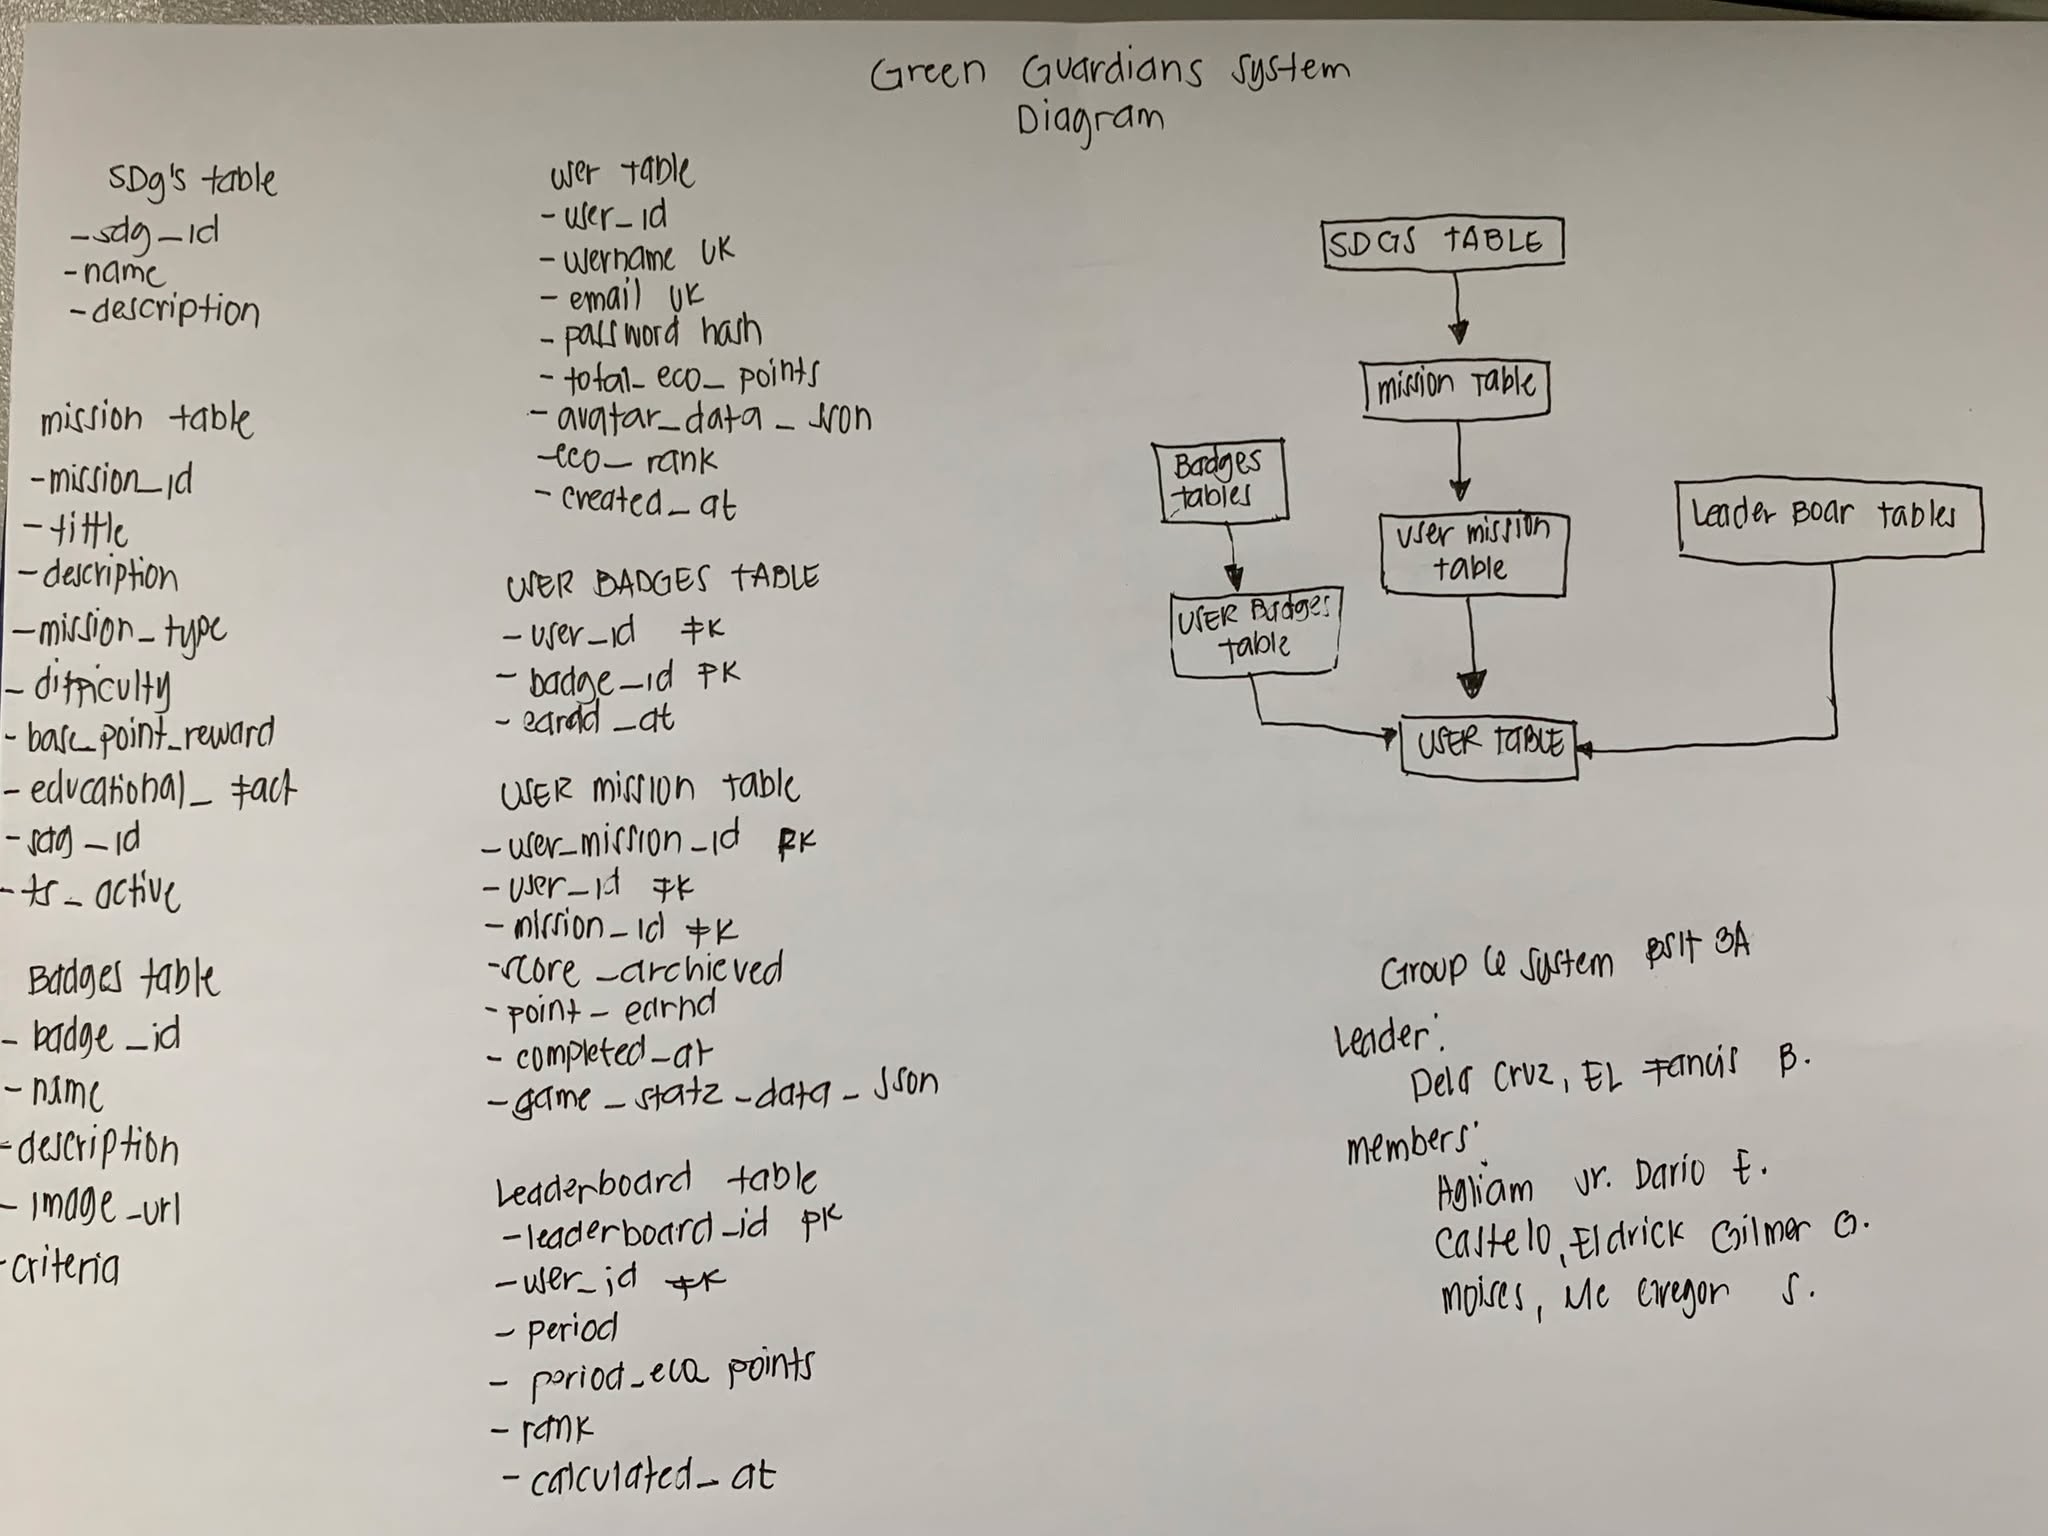 Green Guardians system
Diagram
SDg's table
-sdg_id
-name
-description
mission table
-mission_id
-tittle
-description
-mission_type
-difficulty
-base_point_reward
-educational_fact
-sdg_id
-ts_active
Badges table
-badge_id
-name
-description
-image_url
-criteria
user table
-user_id
-username UK
-email UK
-password hash
-total_eco_points
-avatar_data_json
-eco_rank
-created_at
USER BADGES TABLE
-user_id FK
-badge_id PK
-eardd_at
USER mission table
-user_mission_id
-user_id FK
-mission_id FK
-score_archieved
-point_earnd
-completed_at
-game_statz-data_json
Leaderboard table
-leaderboard_id PK
-user_id FK
-period
-period_eco points
-rank
-calculated_at
SDGS TABLE
mission table
Badges
tables
user mission
table
Leader Boar tables
USER Badges
table
USER TABLE
Group 6 system BSIT 3A
Leader:
Dela Cruz, EL Fancis B.
members:
Agliam Jr. Dario E.
Castelo, Eldrick Gilmer G.
moises, Mc Gregor S.